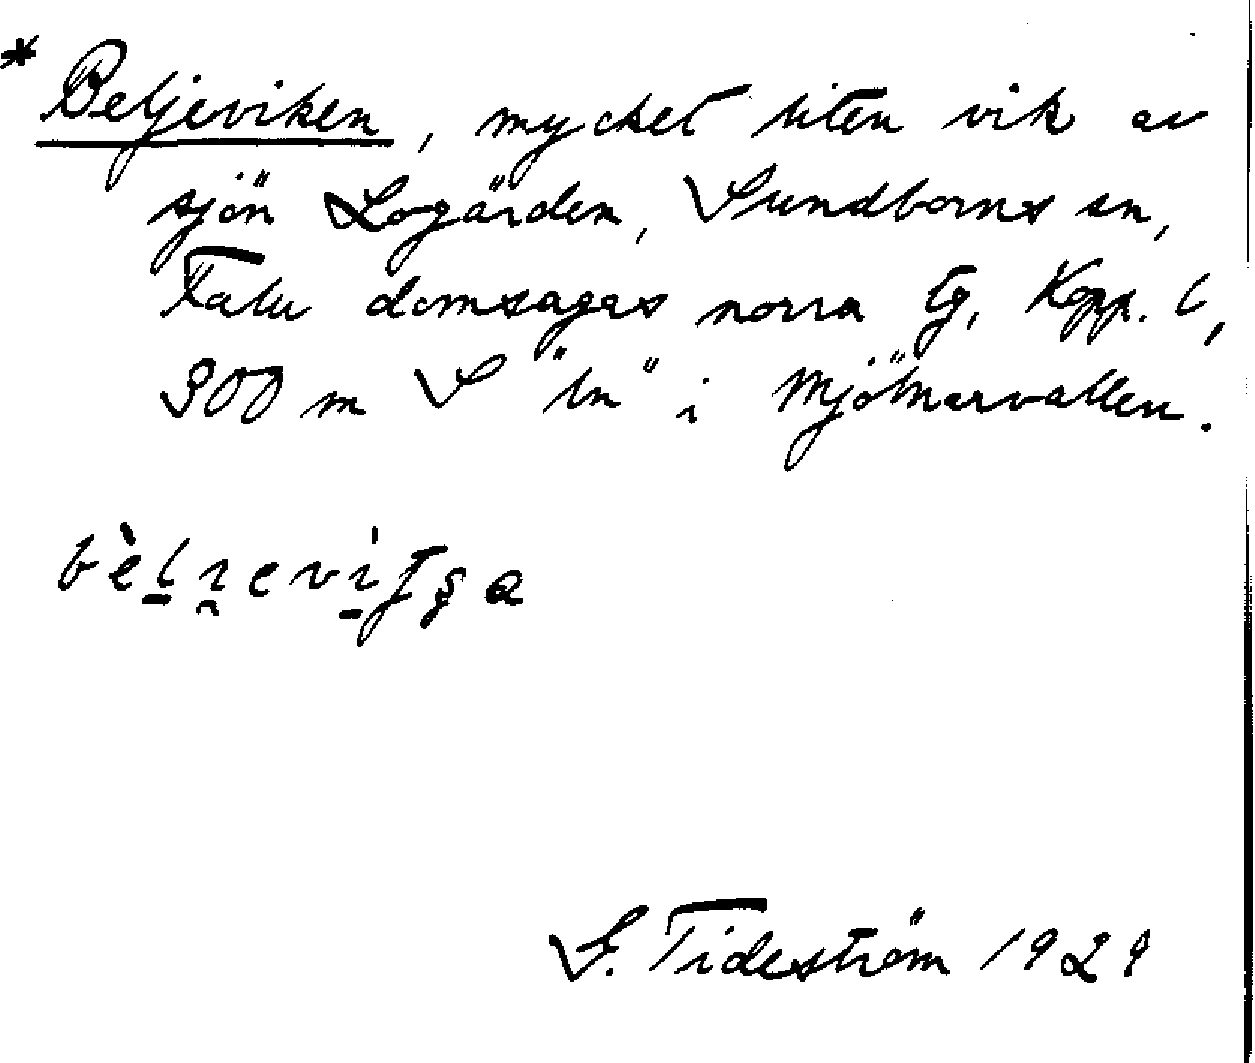 * Beljeviken, mycket liten vik av
sjön Logärden, Sundborns sn,
Falu domsagas norra tg, Kopp. l,
300 m S "ln" i Mjölnarvallen.
S. Tideström 1929